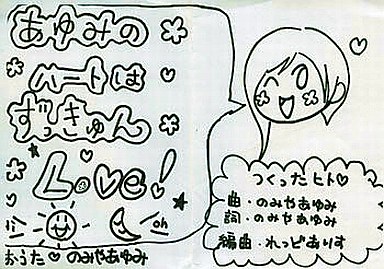 あゆみの
ハートは
ずっきゅん
Love!
oh
おうた♡のみやあゆみ
つくったヒト♡
曲・のみやあゆみ
詞・のみやあゆみ
編曲・れっどありす